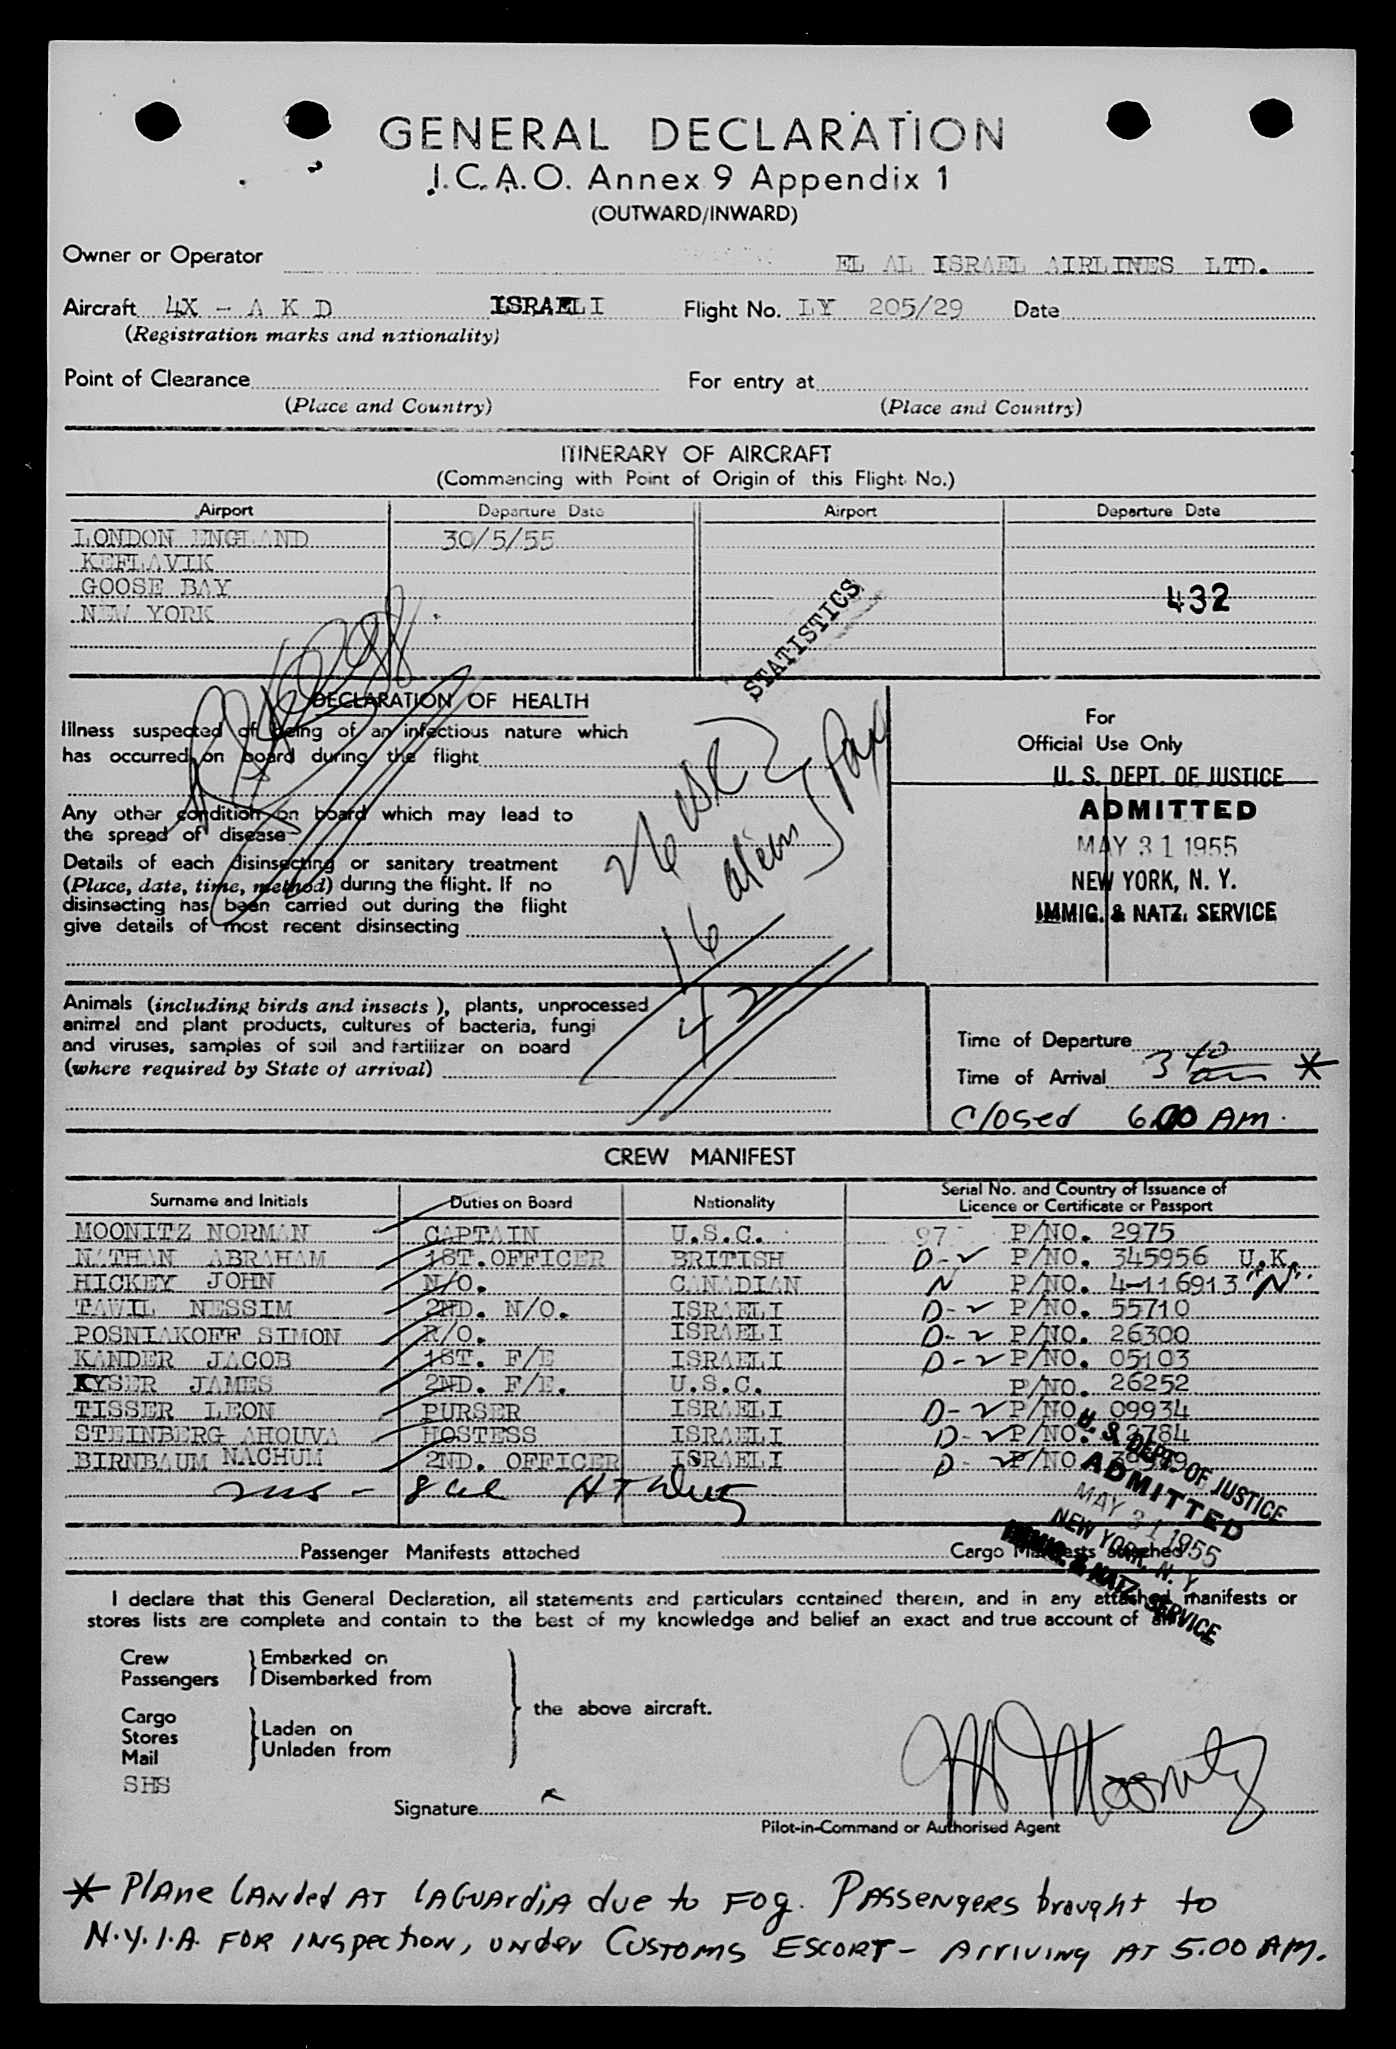 GENERAL DECLARATION
I.C.A.O. Annex 9 Appendix 1
(OUTWARD/INWARD)
Owner or Operator EL AL ISRAEL AIRLINES LTD.
Aircraft 4X - A K D ISRAELI Flight No. LY 205/29 Date
(Registration marks and nationality)
Point of Clearance For entry at
(Place and Country) (Place and Country)
ITINERARY OF AIRCRAFT
(Commencing with Point of Origin of this Flight No.)
Airport Departure Date Airport Departure Date
LONDON ENGLAND 30/5/55
KEFLAVIK
GOOSE BAY
432
NEW YORK
STATISTICS
DECLARATION OF HEALTH
Illness suspected of being of an infectious nature which
has occurred on board during the flight
Any other condition on board which may lead to
the spread of disease
Details of each disinsecting or sanitary treatment
(Place, date, time, method) during the flight. If no
disinsecting has been carried out during the flight
give details of most recent disinsecting
26 USC
16 aliens
42
For
Official Use Only
U. S. DEPT. OF JUSTICE
ADMITTED
MAY 31 1955
NEW YORK, N. Y.
IMMIG. & NATZ. SERVICE
Animals (including birds and insects ), plants, unprocessed
animal and plant products, cultures of bacteria, fungi
and viruses, samples of soil and fertilizer on board
(where required by State of arrival)
Time of Departure
Time of Arrival 3 40 am *
Closed 6.00 AM.
CREW MANIFEST
Surname and Initials Duties on Board Nationality Serial No. and Country of Issuance of Licence or Certificate or Passport
MOONITZ NORMAN CAPTAIN U.S.C. 97 P/NO. 2975
NATHAN ABRAHAM 1ST.OFFICER BRITISH D-2 P/NO. 345956 U.K.
HICKEY JOHN N/O. CANADIAN N P/NO. 4-116913 "N"
TAWIL NESSIM 2ND. N/O. ISRAELI D-2 P/NO. 55710
POSNIAKOFF SIMON R/O. ISRAELI D-2 P/NO. 26300
KANDER JACOB 1ST. F/E ISRAELI D-2 P/NO. 05103
KYSER JAMES 2ND. F/E. U.S.C. P/NO. 26252
TISSER LEON PURSER ISRAELI D-2 P/NO. 09934
STEINBERG AHOUVA HOSTESS ISRAELI D-2 P/NO.
BIRNBAUM NACHUM 2ND. OFFICER ISRAELI D-2 P/NO
U. S. DEPT. OF JUSTICE
ADMITTED
MAY 31 1955
NEW YORK, N. Y.
IMMIG. & NATZ. SERVICE
Passenger Manifests attached Cargo Manifests attached
I declare that this General Declaration, all statements and particulars contained therein, and in any attached manifests or
stores lists are complete and contain to the best of my knowledge and belief an exact and true account of all
Crew Embarked on
Passengers Disembarked from
the above aircraft.
Cargo
Stores Laden on
Mail Unladen from
SHS
Signature N Moonitz
Pilot-in-Command or Authorised Agent
* Plane landed at LaGuardia due to fog. Passengers brought to
N.Y.I.A. for inspection, under Customs Escort - Arriving at 5.00 AM.